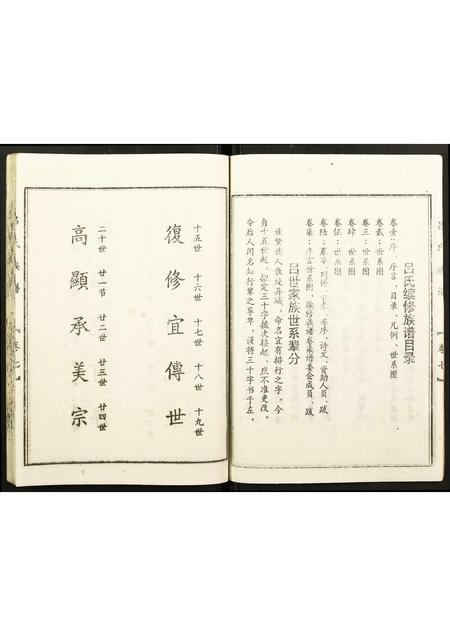 吕氏续修族谱目录
卷壹:序、序言、目录、凡例、世系图
卷贰:世系图
卷三:世系图
卷肆:世系图
卷伍:世系图
卷陆:
序、诗文、资助人员、跋
卷柒:序言世系图、续修族谱卷柒谱委会成员、跋
吕世家族世系辈分
族繁族人散处异域,命名宜有排行之字。今
自十五世起,拟定三十字挨次接起,但不准更改。
令后人闻名知行辈之尊卑,谨将三十字书于左。
卷七
十五世 十六世 十七世 十八世 十九世
復修宜傳世
二十世 廿一节 廿二世 廿三世 廿四世
高顯承美宗